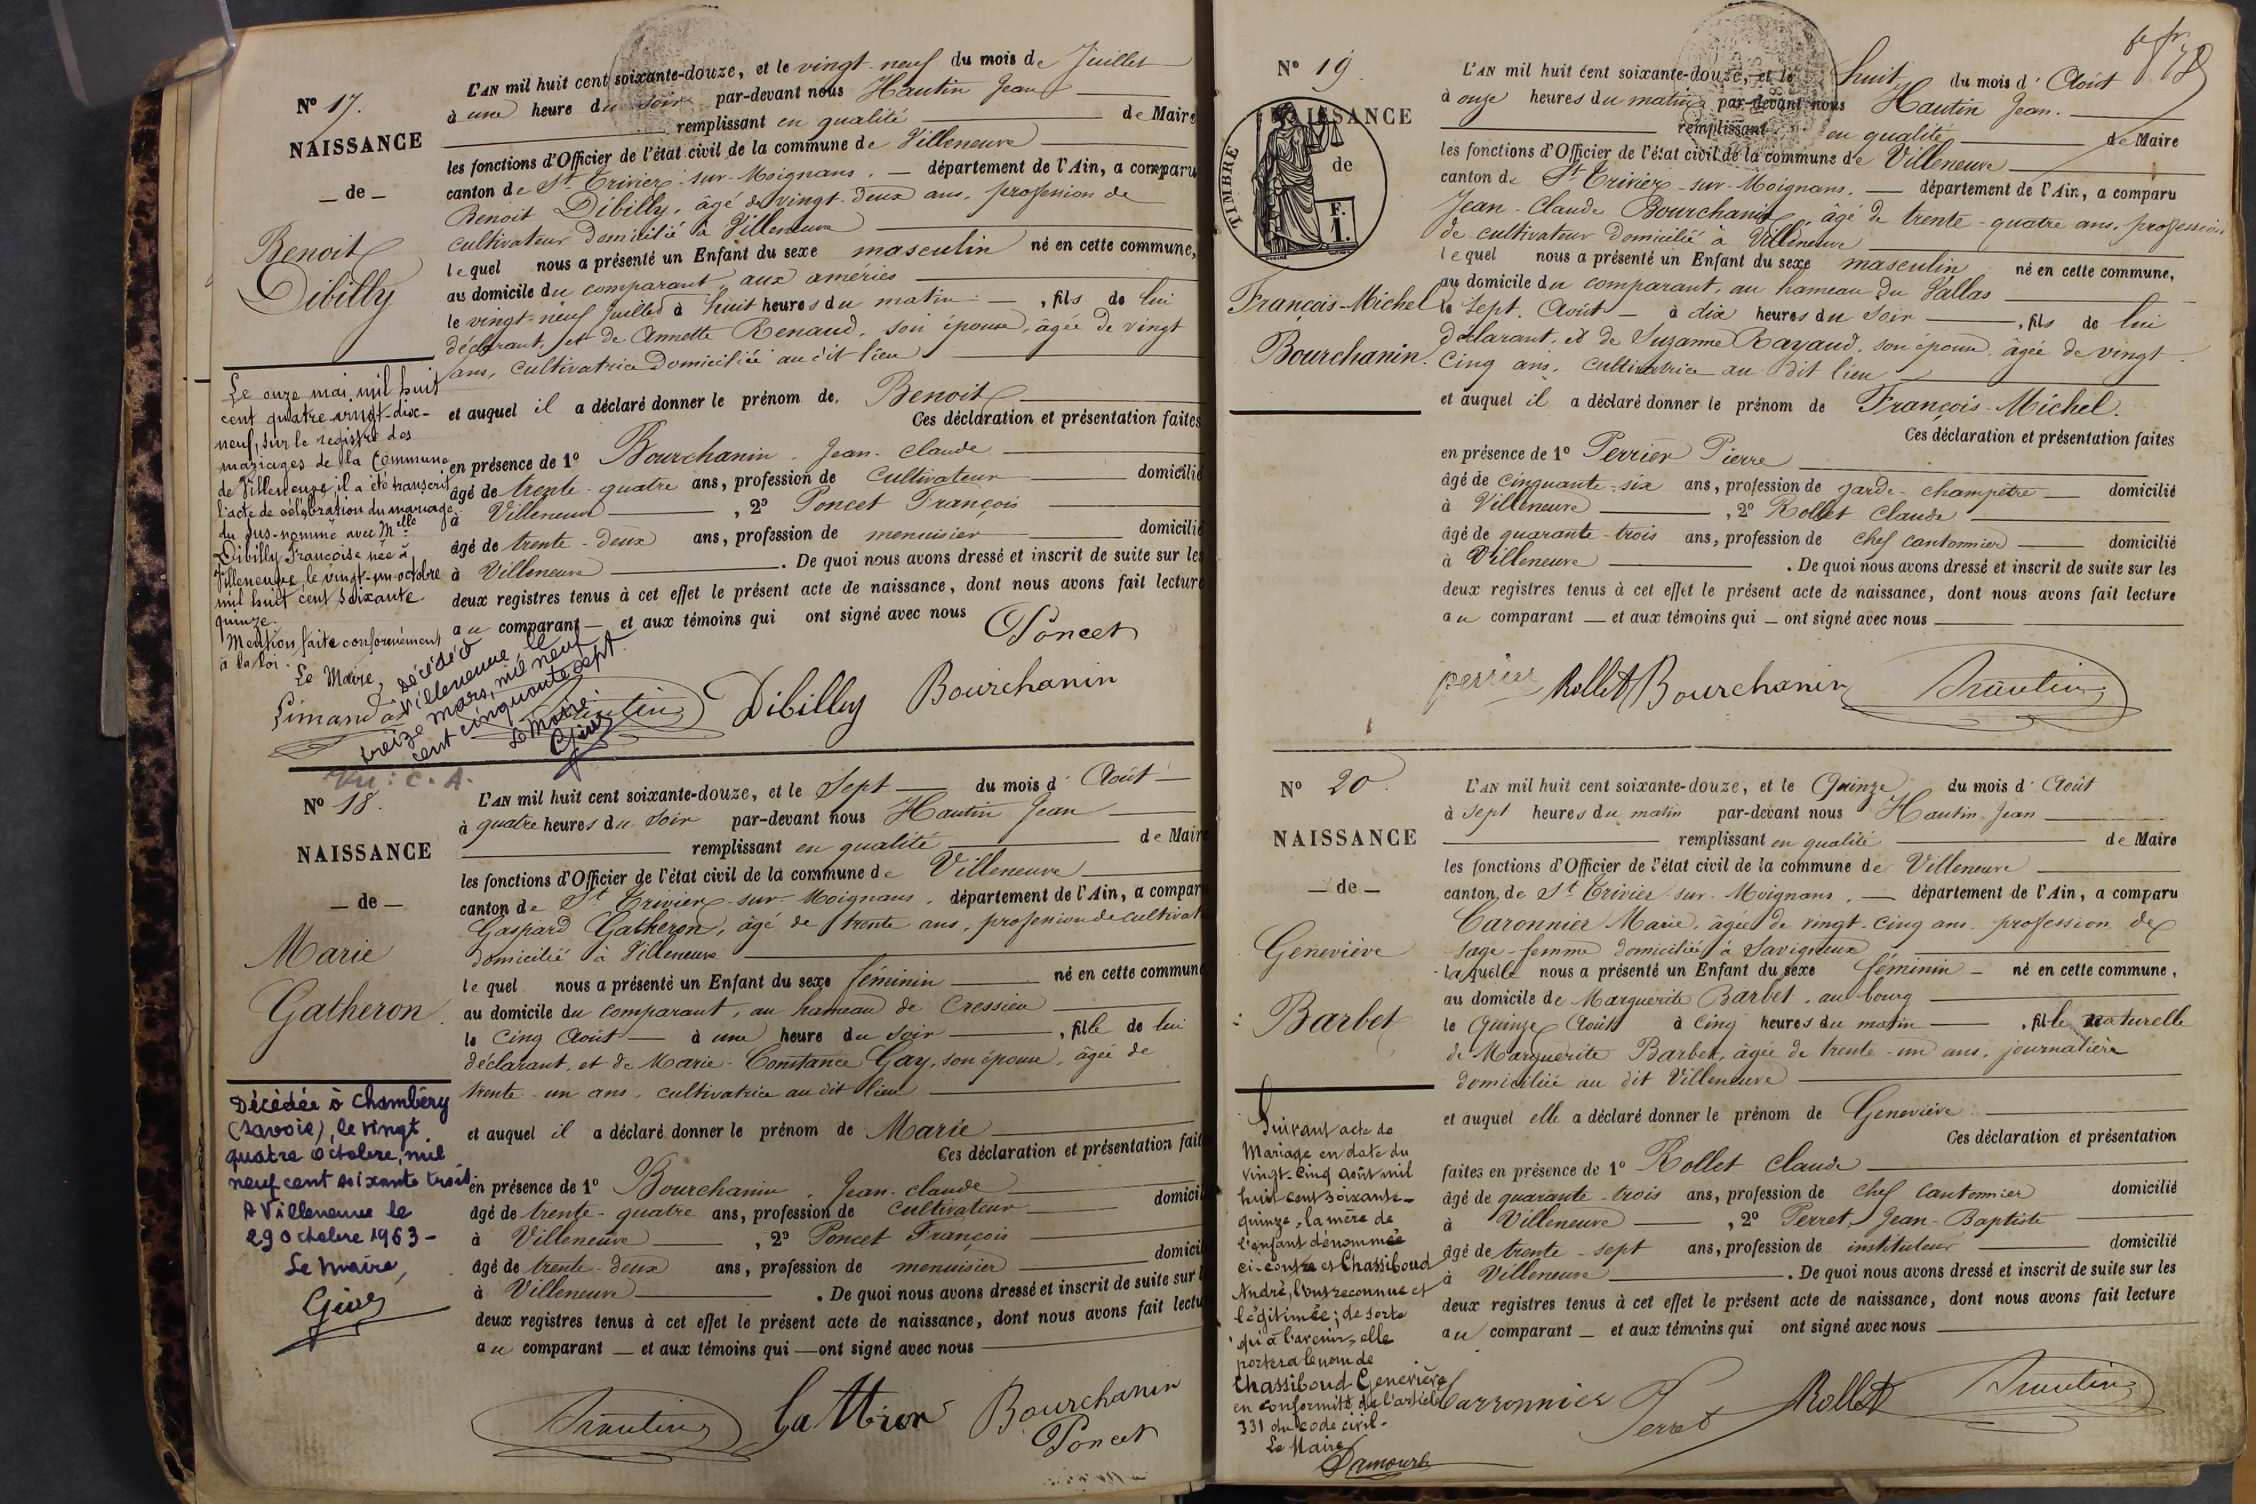 N° 17.
NAISSANCE
— de —
Benoit
Dibilly
L'AN mil huit cent soixante-douze, et le vingt-neuf du mois de Juillet
à une heure du soir par-devant nous Hautin Jean
remplissant en qualité de Maire
les fonctions d'Officier de l'état civil de la commune de Villeneuve
canton de St Trivier-sur-Moignans. — département de l'Ain, a comparu
Benoit Dibilly, âgé de vingt-deux ans, profession de
cultivateur domicilié à Villeneuve
lequel nous a présenté un Enfant du sexe masculin né en cette commune,
au domicile du comparant, aux améries
le vingt-neuf Juillet à huit heures du matin — , fils de lui
déclarant, et de Annette Renaud, son épouse, âgée de vingt
ans, cultivatrice domiciliée au dit lieu
et auquel il a déclaré donner le prénom de Benoit
Ces déclaration et présentation faites
en présence de 1° Bourchanin Jean-Claude
âgé de trente-quatre ans, profession de cultivateur domicilié
à Villeneuve , 2° Poncet François
âgé de trente-deux ans, profession de menuisier domicilié
à Villeneuve . De quoi nous avons dressé et inscrit de suite sur les
deux registres tenus à cet effet le présent acte de naissance, dont nous avons fait lecture
au comparant — et aux témoins qui ont signé avec nous
Poncet
Hautin Dibilly Bourchanin
Le onze mai mil huit
cent quatre vingt-dix-
neuf, sur le registre des
mariages de la Commune
de Villeneuve, il a été transcrit
l'acte de célébration du mariage
du sus-nommé avec Melle
Dibilly Françoise née à
Villeneuve, le vingt-un octobre
mil huit cent soixante
quinze.
Mention faite conformément
à la loi.
Le Maire,
Limandas
Décédé à
Villeneuve, le
treize mars, mil neuf
cent cinquante sept.
Le Maire
Vu : C. A.
N° 18.
NAISSANCE
— de —
Marie
Gatheron.
L'AN mil huit cent soixante-douze, et le Sept du mois d'Août
à quatre heures du soir par-devant nous Hautin Jean
remplissant en qualité de Maire
les fonctions d'Officier de l'état civil de la commune de Villeneuve
canton de St Trivier-sur-Moignans. département de l'Ain, a compar
Gaspard Gatheron, âgé de trente ans, profession de cultivat
domicilié à Villeneuve
lequel nous a présenté un Enfant du sexe féminin né en cette commune
au domicile du comparant, au hameau de Cressieu
le cinq Août — à une heure du soir , fille de lui
déclarant, et de Marie-Constance Gay, son épouse, âgée de
trente-un ans, cultivatrice au dit lieu
et auquel il a déclaré donner le prénom de Marie
Ces déclaration et présentation fait
en présence de 1° Bourchanin, Jean-Claude
âgé de trente-quatre ans, profession de cultivateur domicil
à Villeneuve , 2° Poncet François
âgé de trente-deux ans, profession de menuisier domici
à Villeneuve . De quoi nous avons dressé et inscrit de suite sur l
deux registres tenus à cet effet le présent acte de naissance, dont nous avons fait lectu
au comparant — et aux témoins qui — ont signé avec nous
Hautin Gattron Bourchanin
Poncet
Décédée à Chambéry
(Savoie), le vingt
quatre octobre, mil
neuf cent soixante trois.
A Villeneuve le
29 octobre 1963 -
Le Maire,
N° 19.
NAISSANCE
de
TIMBRE
F.
1.
François-Michel
Bourchanin.
L'AN mil huit cent soixante-douze, et le huit du mois d'Août
à onze heures du matin par-devant nous Hautin Jean.
remplissant en qualité de Maire
les fonctions d'Officier de l'état civil de la commune de Villeneuve
canton de St Trivier-sur-Moignans. — département de l'Ain, a comparu
Jean-Claude Bourchanin, âgé de trente-quatre ans, profession
de cultivateur domicilié à Villeneuve
lequel nous a présenté un Enfant du sexe masculin né en cette commune,
au domicile du comparant, au hameau du Dallas
le Sept Août — à dix heures du soir , fils de lui
déclarant, et de Suzanne Rayaud, son épouse, âgée de vingt
cinq ans, cultivatrice au dit lieu
et auquel il a déclaré donner le prénom de François-Michel.
Ces déclaration et présentation faites
en présence de 1° Perrier Pierre
âgé de cinquante-six ans, profession de garde-champêtre domicilié
à Villeneuve , 2° Rollet Claude
âgé de quarante-trois ans, profession de chef cantonnier domicilié
à Villeneuve . De quoi nous avons dressé et inscrit de suite sur les
deux registres tenus à cet effet le présent acte de naissance, dont nous avons fait lecture
au comparant — et aux témoins qui — ont signé avec nous
perrier Rollet Bourchanin Hautin
N° 20.
NAISSANCE
— de —
Geneviève
Barbet
L'AN mil huit cent soixante-douze, et le Quinze du mois d'Août
à sept heures du matin par-devant nous Hautin Jean
remplissant en qualité de Maire
les fonctions d'Officier de l'état civil de la commune de Villeneuve
canton de St Trivier-sur-Moignans. — département de l'Ain, a comparu
Caronnier Marie, âgée de vingt-cinq ans profession de
sage-femme domiciliée à Savigneux
laquelle nous a présenté un Enfant du sexe féminin — né en cette commune,
au domicile de Marguerite Barbet, au bourg
le Quinze Août à cinq heures du matin , fille naturelle
de Marguerite Barbet, âgée de trente-un ans, journalière
domiciliée au dit Villeneuve
et auquel elle a déclaré donner le prénom de Geneviève
Ces déclaration et présentation
faites en présence de 1° Rollet Claude
âgé de quarante-trois ans, profession de chef cantonnier domicilié
à Villeneuve , 2° Perret, Jean-Baptiste
âgé de trente-sept ans, profession de instituteur domicilié
à Villeneuve . De quoi nous avons dressé et inscrit de suite sur les
deux registres tenus à cet effet le présent acte de naissance, dont nous avons fait lecture
au comparant — et aux témoins qui ont signé avec nous
Carronnier Perret Rollet Hautin
Suivant acte de
Mariage en date du
vingt-cinq août mil
huit cent soixante-
quinze, la mère de
l'enfant dénommée
ci-contre et Chassiboud
André, l'ont reconnue et
légitimée ; de sorte
qu'à l'avenir, elle
portera le nom de
Chassiboud Geneviève
en conformité de l'article
331 du code civil.
Le Maire
Damour